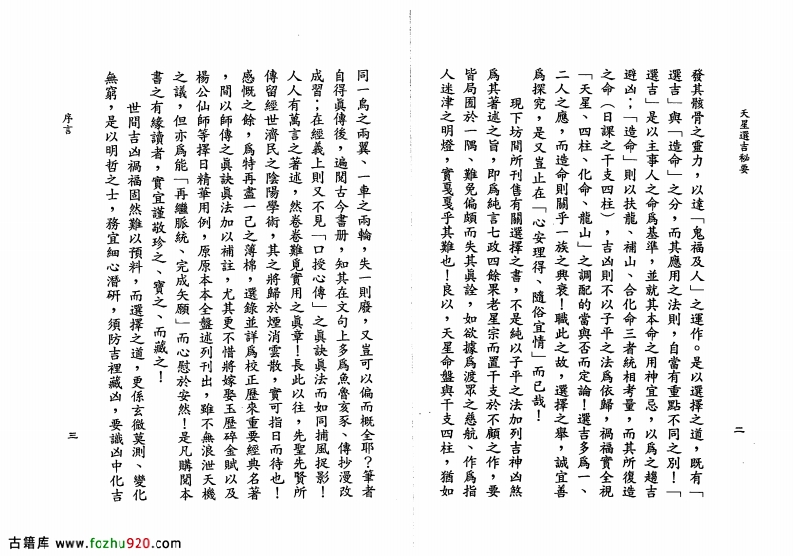 天星選吉秘要
二
發其骸骨之靈力，以達「鬼福及人」之運作。是以選擇之道，既有「
選吉」與「造命」之分，而其應用之法則，自當有重點不同之別！「
選吉」是以主事人之命爲基準，並就其本命之用神宜忌，以爲之趨吉
避凶；「造命」則以扶龍、補山、合化命三者統相考量，而其所復造
之命（日課之干支四柱），吉凶則不以子平之法爲依歸，禍福實全視
「天星、四柱、化命、龍山」之調配的當與否而定論！選吉多爲一、
二人之應，而造命則關乎一族之興衰！職此之故，選擇之舉，誠宜善
爲探究，是又豈止在「心安理得、隨俗宜情」而已哉！
現下坊間所刊售有關選擇之書，不是純以子平之法加列吉神凶煞
爲其著述之旨，即爲純言七政四餘果老星宗而置干支於不顧之作，要
皆局囿於一隅、難免偏頗而失其眞詮，如欲據爲渡眾之慈航、作爲指
人迷津之明燈，實戛戛乎其難也！良以，天星命盤與干支四柱，猶如
同一鳥之兩翼、一車之兩輪，失一則廢，又豈可以偏而概全耶？筆者
自得眞傳後，遍閱古今書册，知其在文句上多爲魚魯亥豕、傳抄漫改
成習；在經義上則又不見「口授心傳」之眞訣眞法而如同捕風捉影！
人人有萬言之著述，然卷卷難覓實用之眞章！長此以往，先聖先賢所
傳留經世濟民之陰陽學術，其之將歸於煙消雲散，實可指日而待也！
感慨之餘，爲特再盡一己之薄棉，選錄並詳爲校正歷來重要經典名著
，間以師傳之眞訣眞法加以補註，尤其更不惜將嫁娶玉歷碎金賦以及
楊公仙師等擇日精華用例，原原本本全盤述列刊出，雖不無浪泄天機
之議，但亦爲能「再繼脈統、完成矢願」而心慰於安然！是凡購閱本
書之有緣讀者，實宜謹敬珍之、寶之、而藏之！
世間吉凶禍福固然難以預料，而選擇之道，更係玄微莫測、變化
無窮，是以明哲之士，務宜細心潛研，須防吉裡藏凶，要識凶中化吉
序言
三
古籍库 www.fozhu920.com